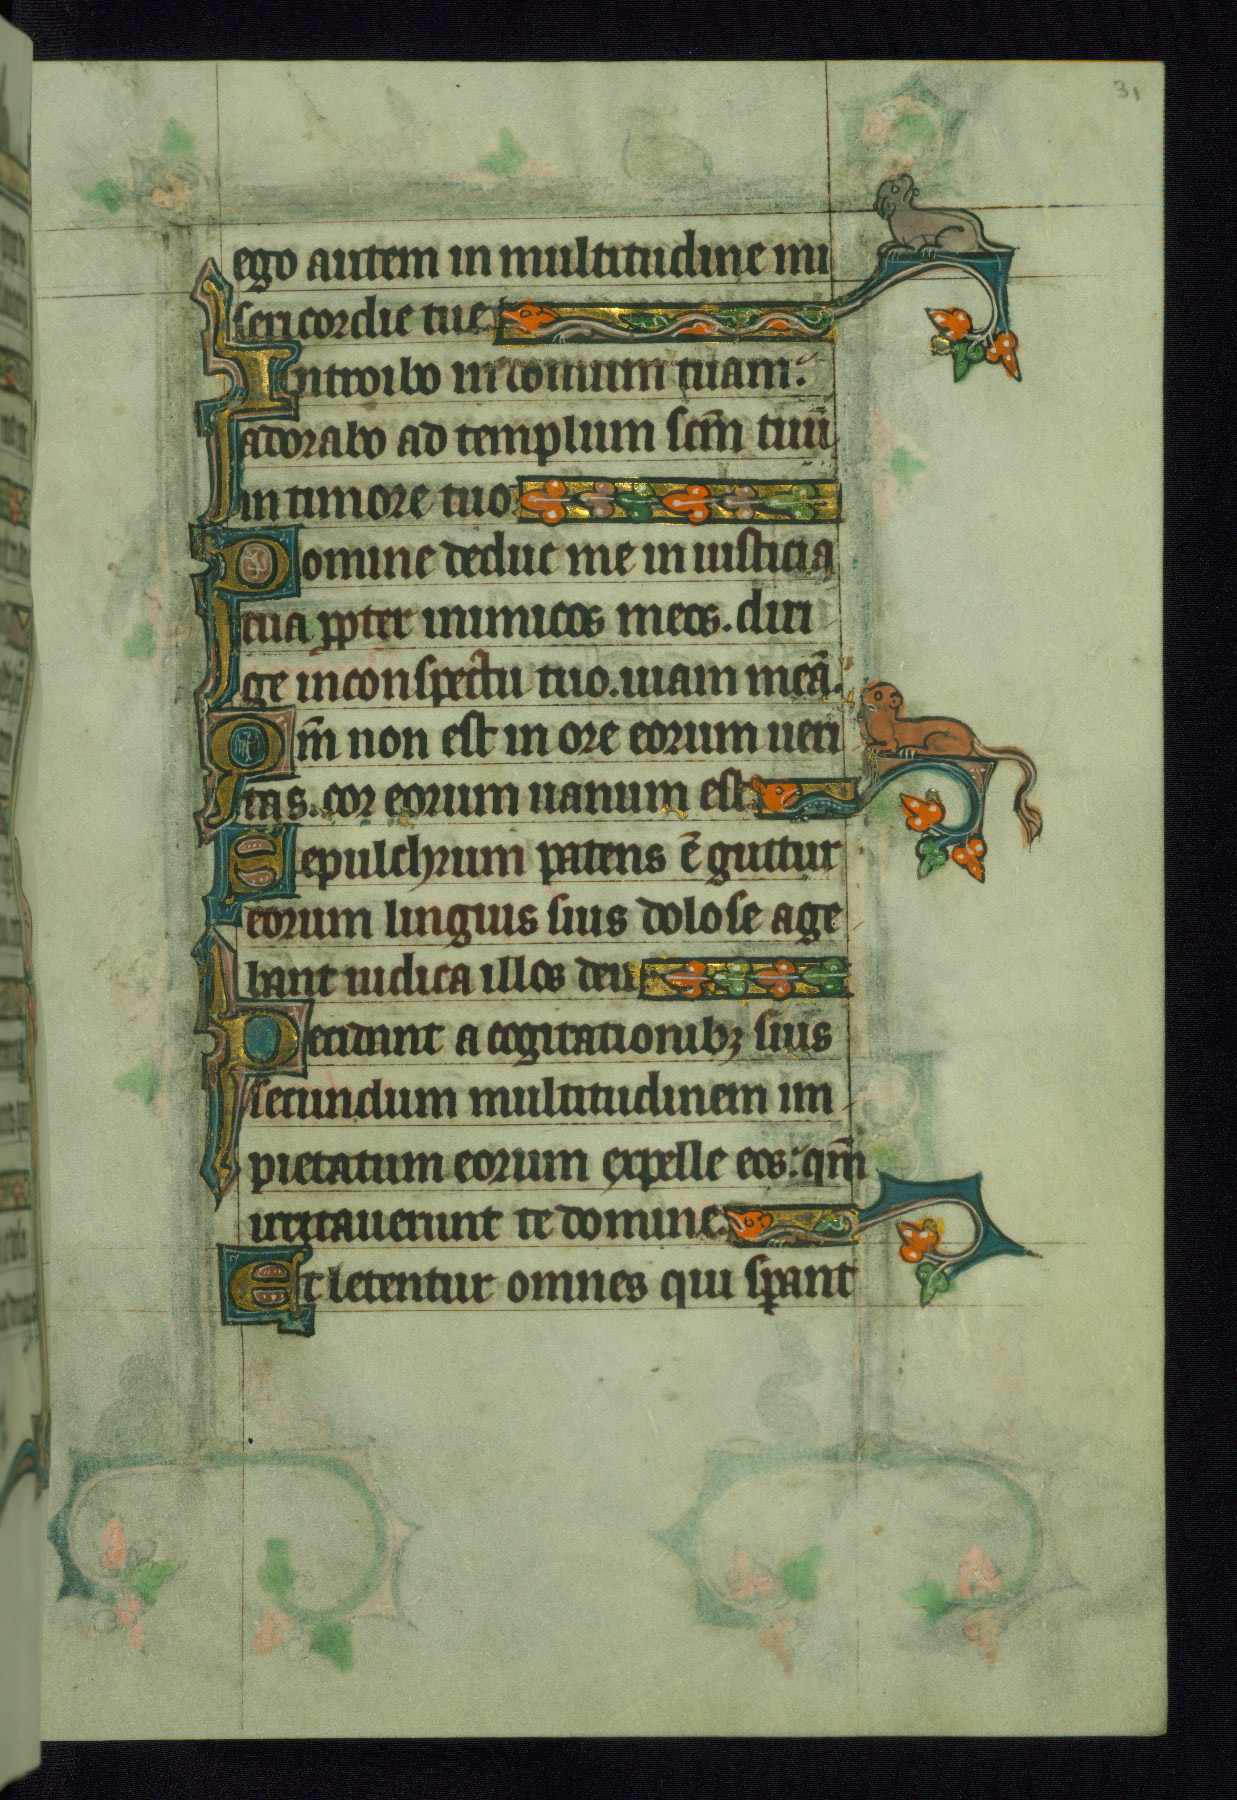 31
ego autem in multitudine mi
sericordie tue
Introibo in domum tuam.
adorabo ad templum scm̄ tuū
in timore tuo
Domine deduc me in iusticia
tua ꝓpter inimicos meos. diri
ge in conspectu tuo. uiam meā.
Qm̄ non est in ore eorum ueri
tas. cor eorum uanum est
Sepulchrum patens ē guttur
eorum linguis suis dolose age
bant iudica illos deus
Decidant a cogitationibꝫ suis
secundum multitudinem im
pietatum eorum expelle eos. qm̄
irritauerunt te domine
Et letentur omnes qui sꝑant